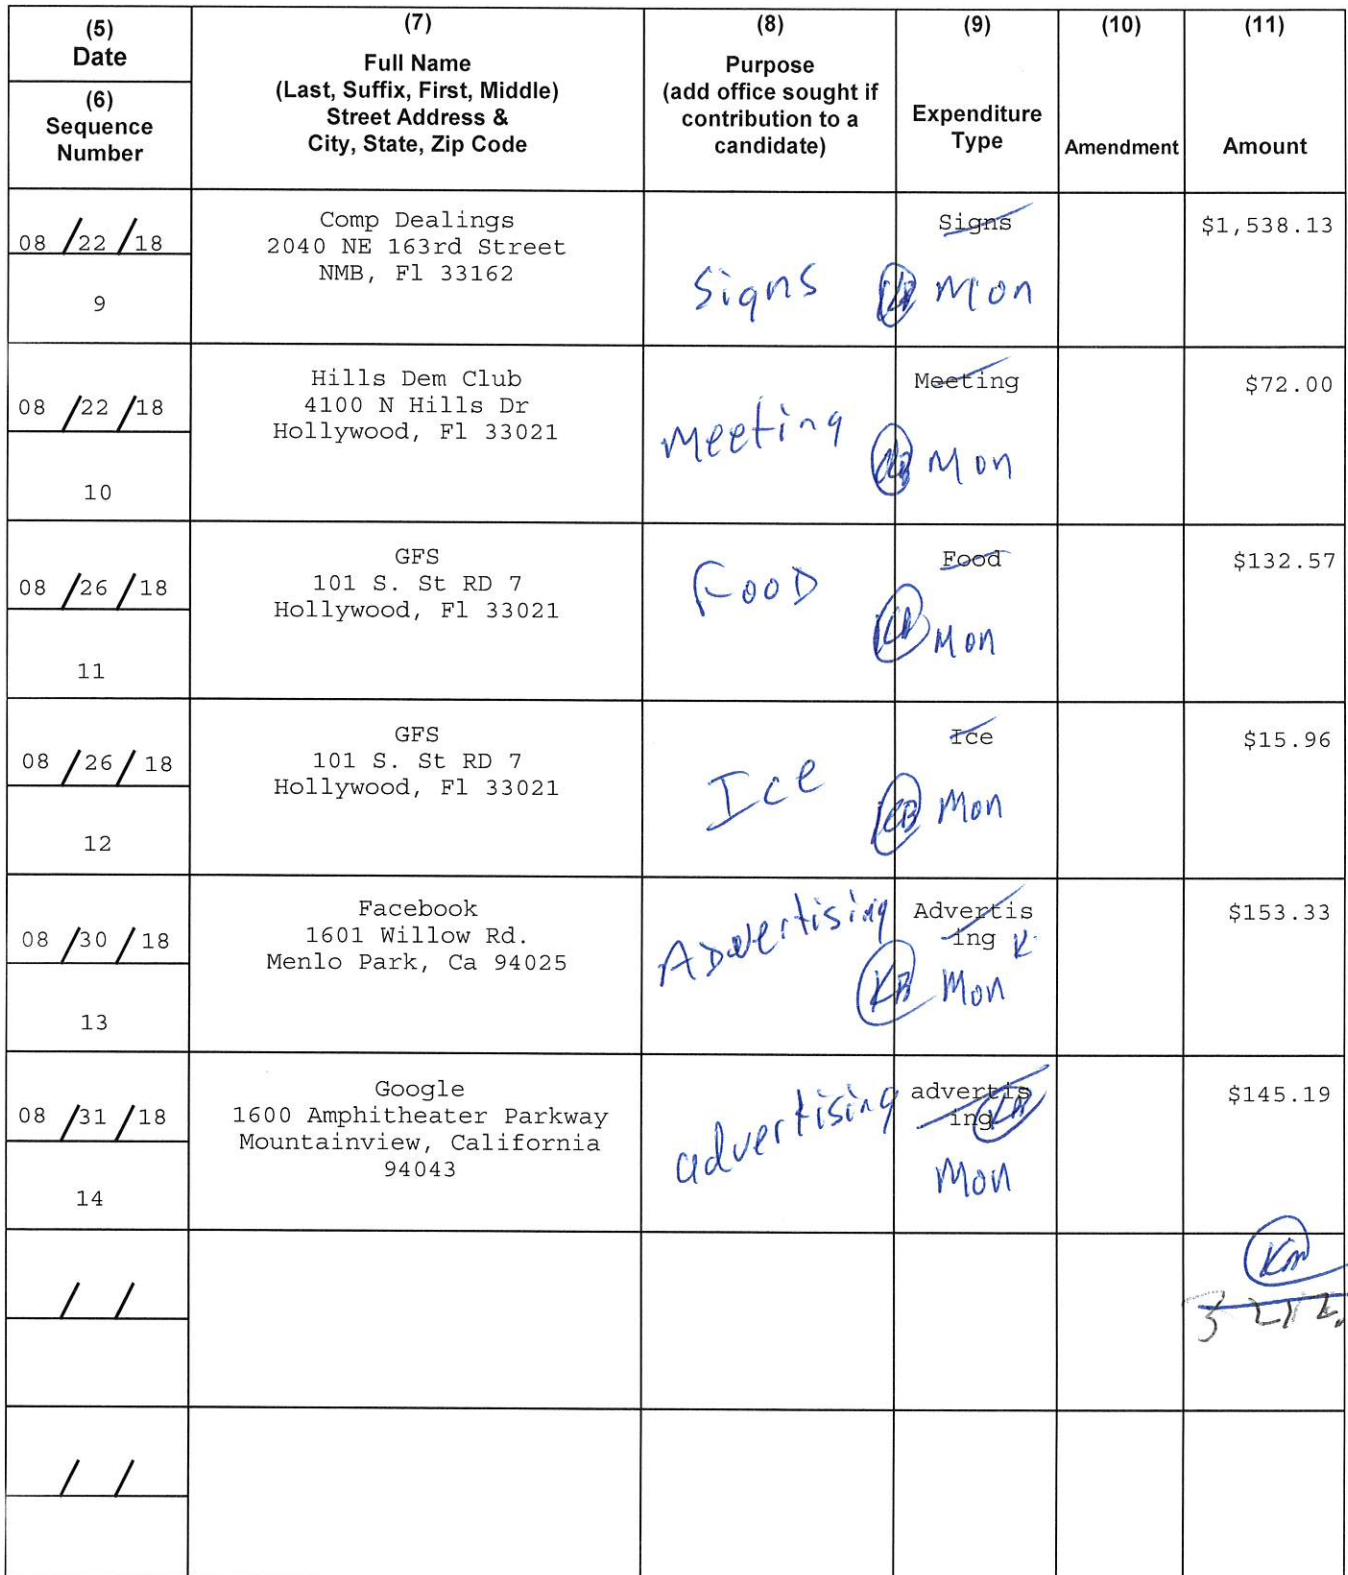 (5)
Date
(6)
Sequence
Number
(7)
Full Name
(Last, Suffix, First, Middle)
Street Address &
City, State, Zip Code
(8)
Purpose
(add office sought if
contribution to a
candidate)
(9)
Expenditure
Type
(10)
Amendment
(11)
Amount
08 / 22 / 18
9
Comp Dealings
2040 NE 163rd Street
NMB, Fl 33162
Signs
Signs
Mon
$1,538.13
08 / 22 / 18
10
Hills Dem Club
4100 N Hills Dr
Hollywood, Fl 33021
Meeting
Meeting
KB Mon
$72.00
08 / 26 / 18
11
GFS
101 S. St RD 7
Hollywood, Fl 33021
FooD
Food
KB Mon
$132.57
08 / 26 / 18
12
GFS
101 S. St RD 7
Hollywood, Fl 33021
Ice
Ice
KB Mon
$15.96
08 / 30 / 18
13
Facebook
1601 Willow Rd.
Menlo Park, Ca 94025
ADvertising
Advertis
ing K
KB Mon
$153.33
08 / 31 / 18
14
Google
1600 Amphitheater Parkway
Mountainview, California
94043
advertising
advertis
ing
Mon
$145.19
/ /
/ /